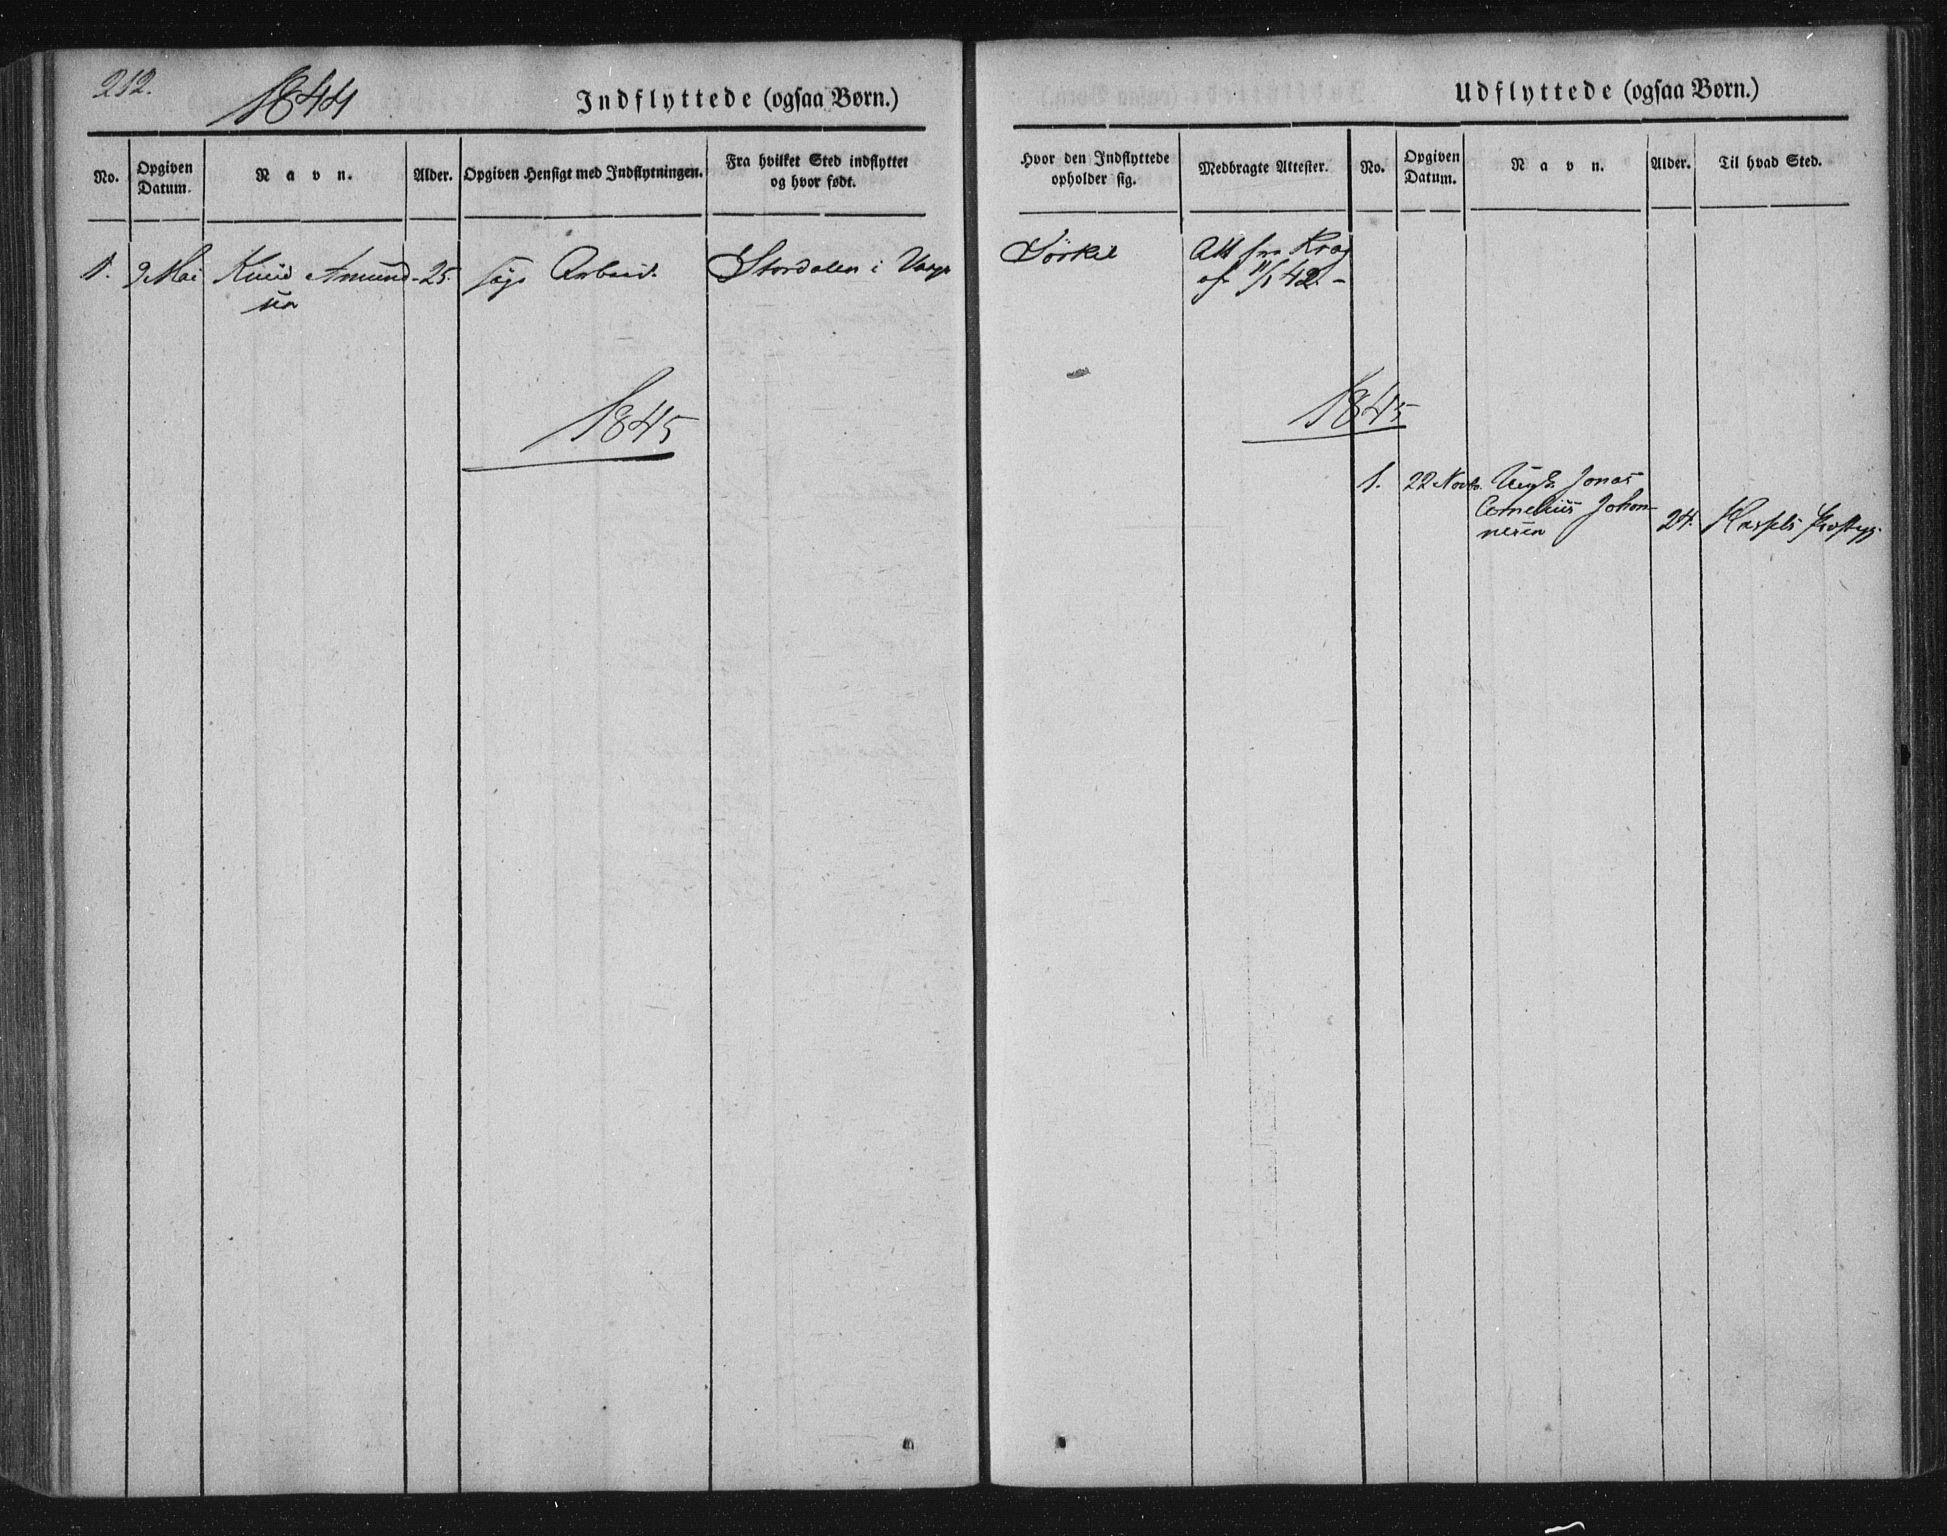 212.
1844
Indflyttede (ogsaa Børn.)
No.
Opgiven
Datum.
Navn.
Alder.
Opgiven Hensigt med Indflytningen.
Fra hvilket Sted indflyttet
og hvor født.
1.
9 Mai
Knud Amund-
sen
25.
søge Arbeid.
Stordalen i
1845
Udflyttede (ogsaa Børn.)
Hvor den Indflyttede
opholder sig.
Medbragte Attester.
No.
Opgiven
Datum.
Navn.
Alder.
Til hvad Sted.
Sörkil
Att fra
af 42.-
1845
1.
22 Novb.
Jonas
Cornelius Johan-
nesen
24.